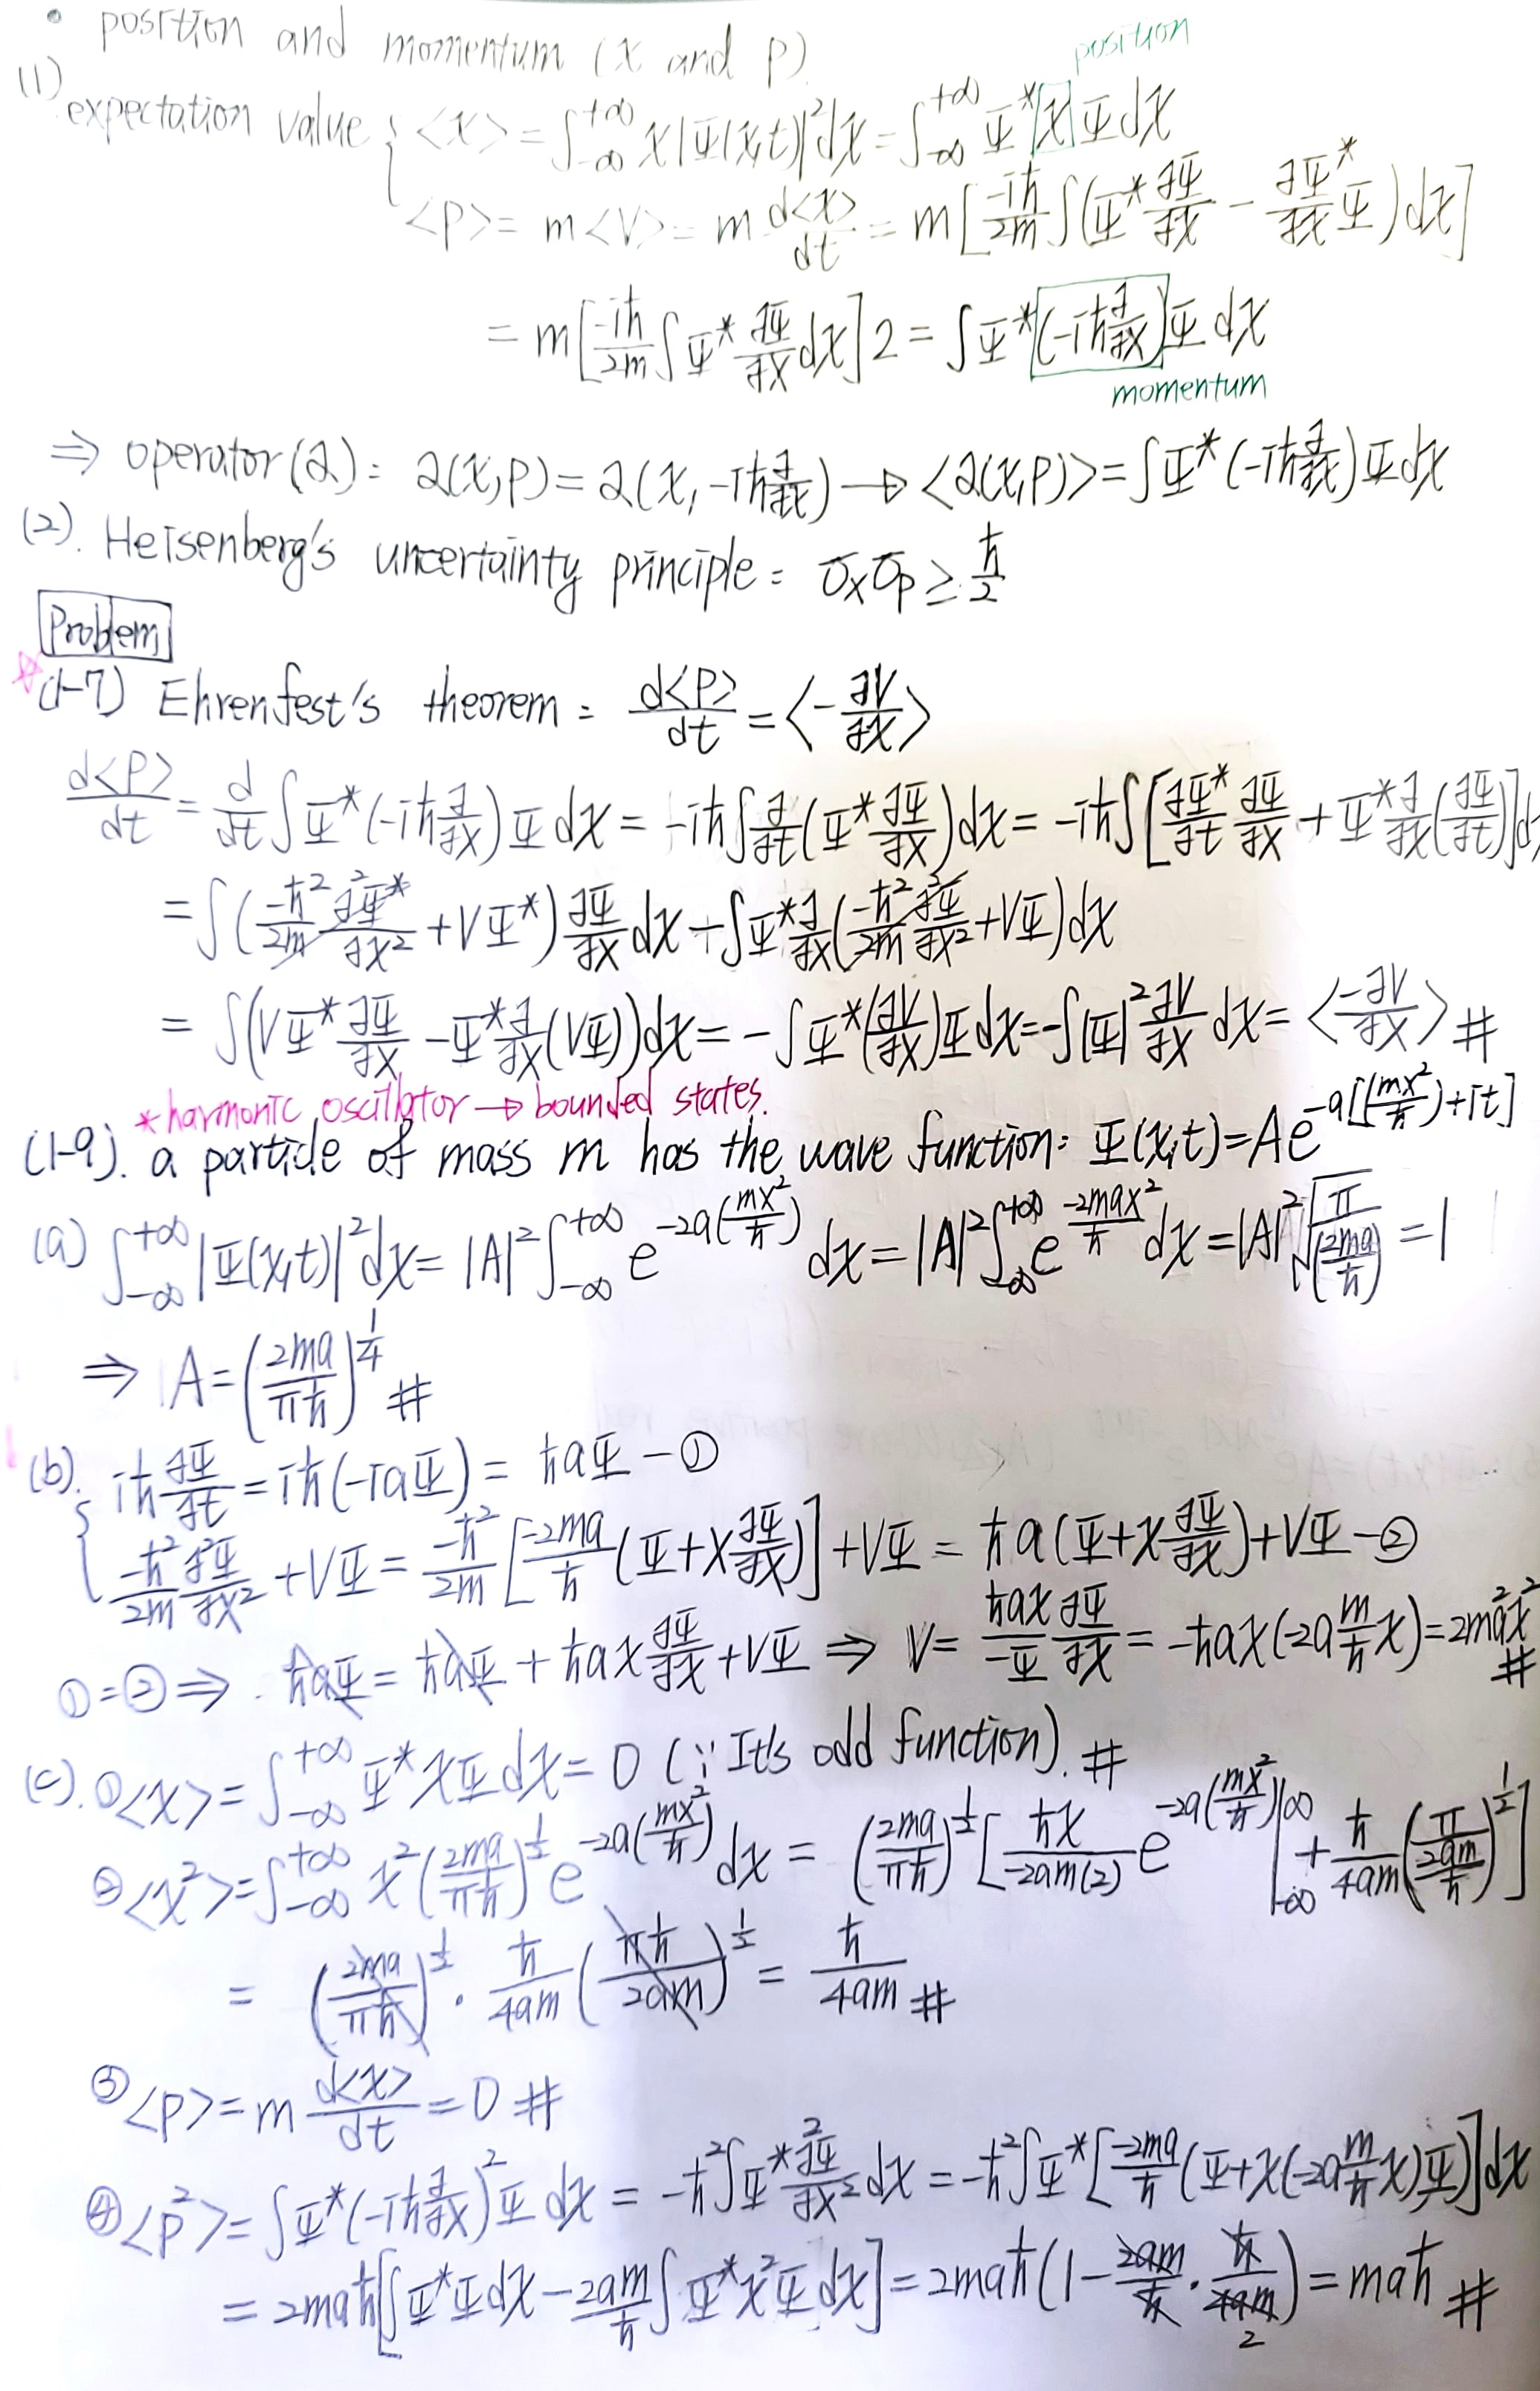 • position and momentum (x and p)
position
(1) expectation value { <x> = ∫_{-∞}^{+∞} x|Ψ(x,t)|² dx = ∫_{-∞}^{+∞} Ψ* [x] Ψ dx
<p> = m<v> = m d<x>/dt = m[-iħ/2m ∫(Ψ* ∂Ψ/∂x - ∂Ψ*/∂x Ψ) dx]
= m[-iħ/2m ∫Ψ* ∂Ψ/∂x dx] 2 = ∫Ψ* (-iħ ∂/∂x) Ψ dx
momentum
⇒ operator (Q): Q(x,p) = Q(x, -iħ ∂/∂x) → <Q(x,p)> = ∫Ψ* (-iħ ∂/∂x) Ψ dx
(2). Heisenberg's uncertainty principle: σxσp ≥ ħ/2
Problem
☆(1-7) Ehrenfest's theorem: d<p>/dt = <-∂V/∂x>
d<p>/dt = d/dt ∫Ψ* (-iħ ∂/∂x) Ψ dx = -iħ ∫ ∂/∂t (Ψ* ∂Ψ/∂x) dx = -iħ ∫[∂Ψ*/∂t ∂Ψ/∂x + Ψ* ∂/∂x (∂Ψ/∂t)] d
= ∫(-ħ²/2m ∂²Ψ*/∂x² + VΨ*) ∂Ψ/∂x dx - ∫Ψ* ∂/∂x (-ħ²/2m ∂²Ψ/∂x² + VΨ) dx
= ∫(VΨ* ∂Ψ/∂x - Ψ* ∂/∂x (VΨ)) dx = -∫Ψ* (∂V/∂x) Ψ dx = -∫|Ψ|² ∂V/∂x dx = <-∂V/∂x> #
* harmonic oscillator → bounded states.
(1-9). a particle of mass m has the wave function: Ψ(x,t) = Ae^{-a[(mx²/ħ)+it]}
(a) ∫_{-∞}^{+∞} |Ψ(x,t)|² dx = |A|² ∫_{-∞}^{+∞} e^{-2a(mx²/ħ)} dx = |A|² ∫_{-∞}^{+∞} e^{-2max²/ħ} dx = |A|² √(π/(2ma/ħ)) = 1
⇒ A = (2ma/πħ)^{1/4} #
(b). { iħ ∂Ψ/∂t = iħ(-iaΨ) = ħaΨ - ①
-ħ²/2m ∂²Ψ/∂x² + VΨ = -ħ²/2m [-2ma/ħ (Ψ + x ∂Ψ/∂x)] + VΨ = ħa(Ψ + x ∂Ψ/∂x) + VΨ - ②
① = ② ⇒ ħaΨ = ħaΨ + ħax ∂Ψ/∂x + VΨ ⇒ V = ħax/-Ψ ∂Ψ/∂x = -ħax(-2a m/ħ x) = 2ma²x² #
(c). ① <x> = ∫_{-∞}^{+∞} Ψ* xΨ dx = 0 (∵ It's odd function). #
② <x²> = ∫_{-∞}^{+∞} x² (2ma/πħ)^{1/2} e^{-2a(mx²/ħ)} dx = (2ma/πħ)^{1/2} [ħx/-2am(2) e^{-2a(mx²/ħ)} |_{-∞}^{∞} + ħ/4am (π/(2am/ħ))^{1/2}]
= (2ma/πħ)^{1/2} · ħ/4am (πħ/2am)^{1/2} = ħ/4am #
③ <p> = m d<x>/dt = 0 #
④ <p²> = ∫Ψ* (-iħ ∂/∂x)² Ψ dx = -ħ² ∫Ψ* ∂²Ψ/∂x² dx = -ħ² ∫Ψ* [-2ma/ħ (Ψ + x(-2a m/ħ x)Ψ)] dx
= 2maħ[∫Ψ*Ψ dx - 2am/ħ ∫Ψ* x² Ψ dx] = 2maħ(1 - 2am/ħ · ħ/4am 2) = maħ #